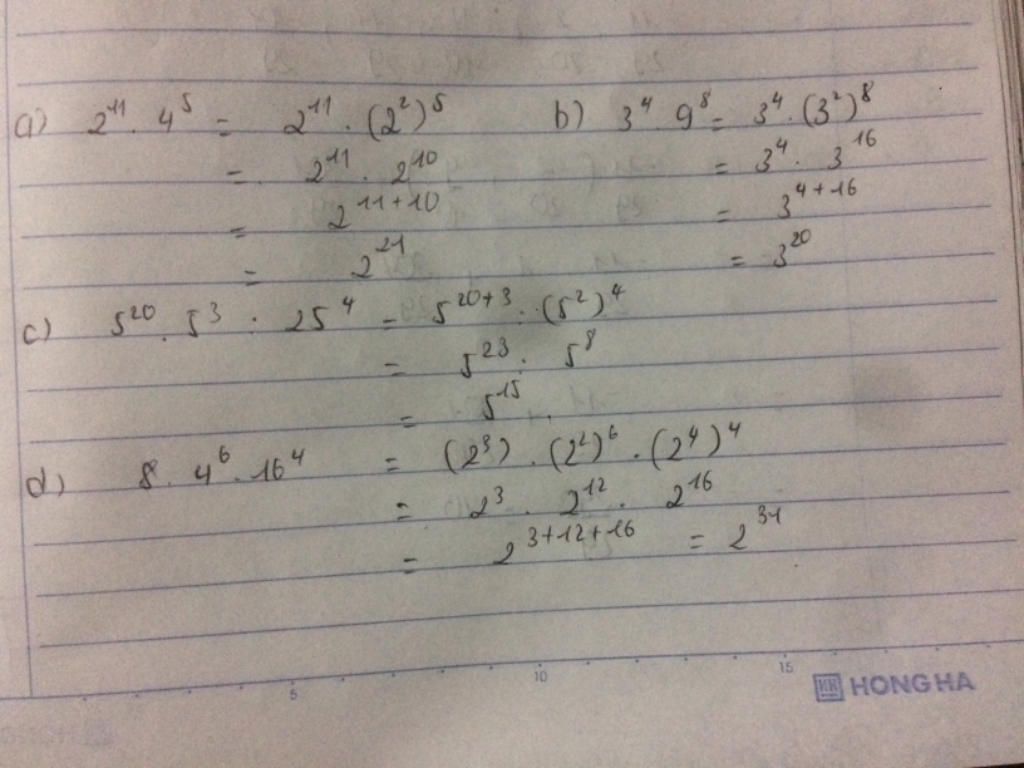 a) 2¹¹ . 4⁵ = 2¹¹ . (2²)⁵
= 2¹¹ . 2¹⁰
= 2¹¹⁺¹⁰
= 2²¹
b) 3⁴ . 9⁸ = 3⁴ . (3²)⁸
= 3⁴ . 3¹⁶
= 3⁴⁺¹⁶
= 3²⁰
c) 5²⁰ . 5³ : 25⁴ = 5²⁰⁺³ : (5²)⁴
= 5²³ : 5⁸
= 5¹⁵
d) 8 . 4⁶ . 16⁴ = (2³) . (2²)⁶ . (2⁴)⁴
= 2³ . 2¹² . 2¹⁶
= 2³⁺¹²⁺¹⁶ = 2³¹
5 10 15
HONG HA